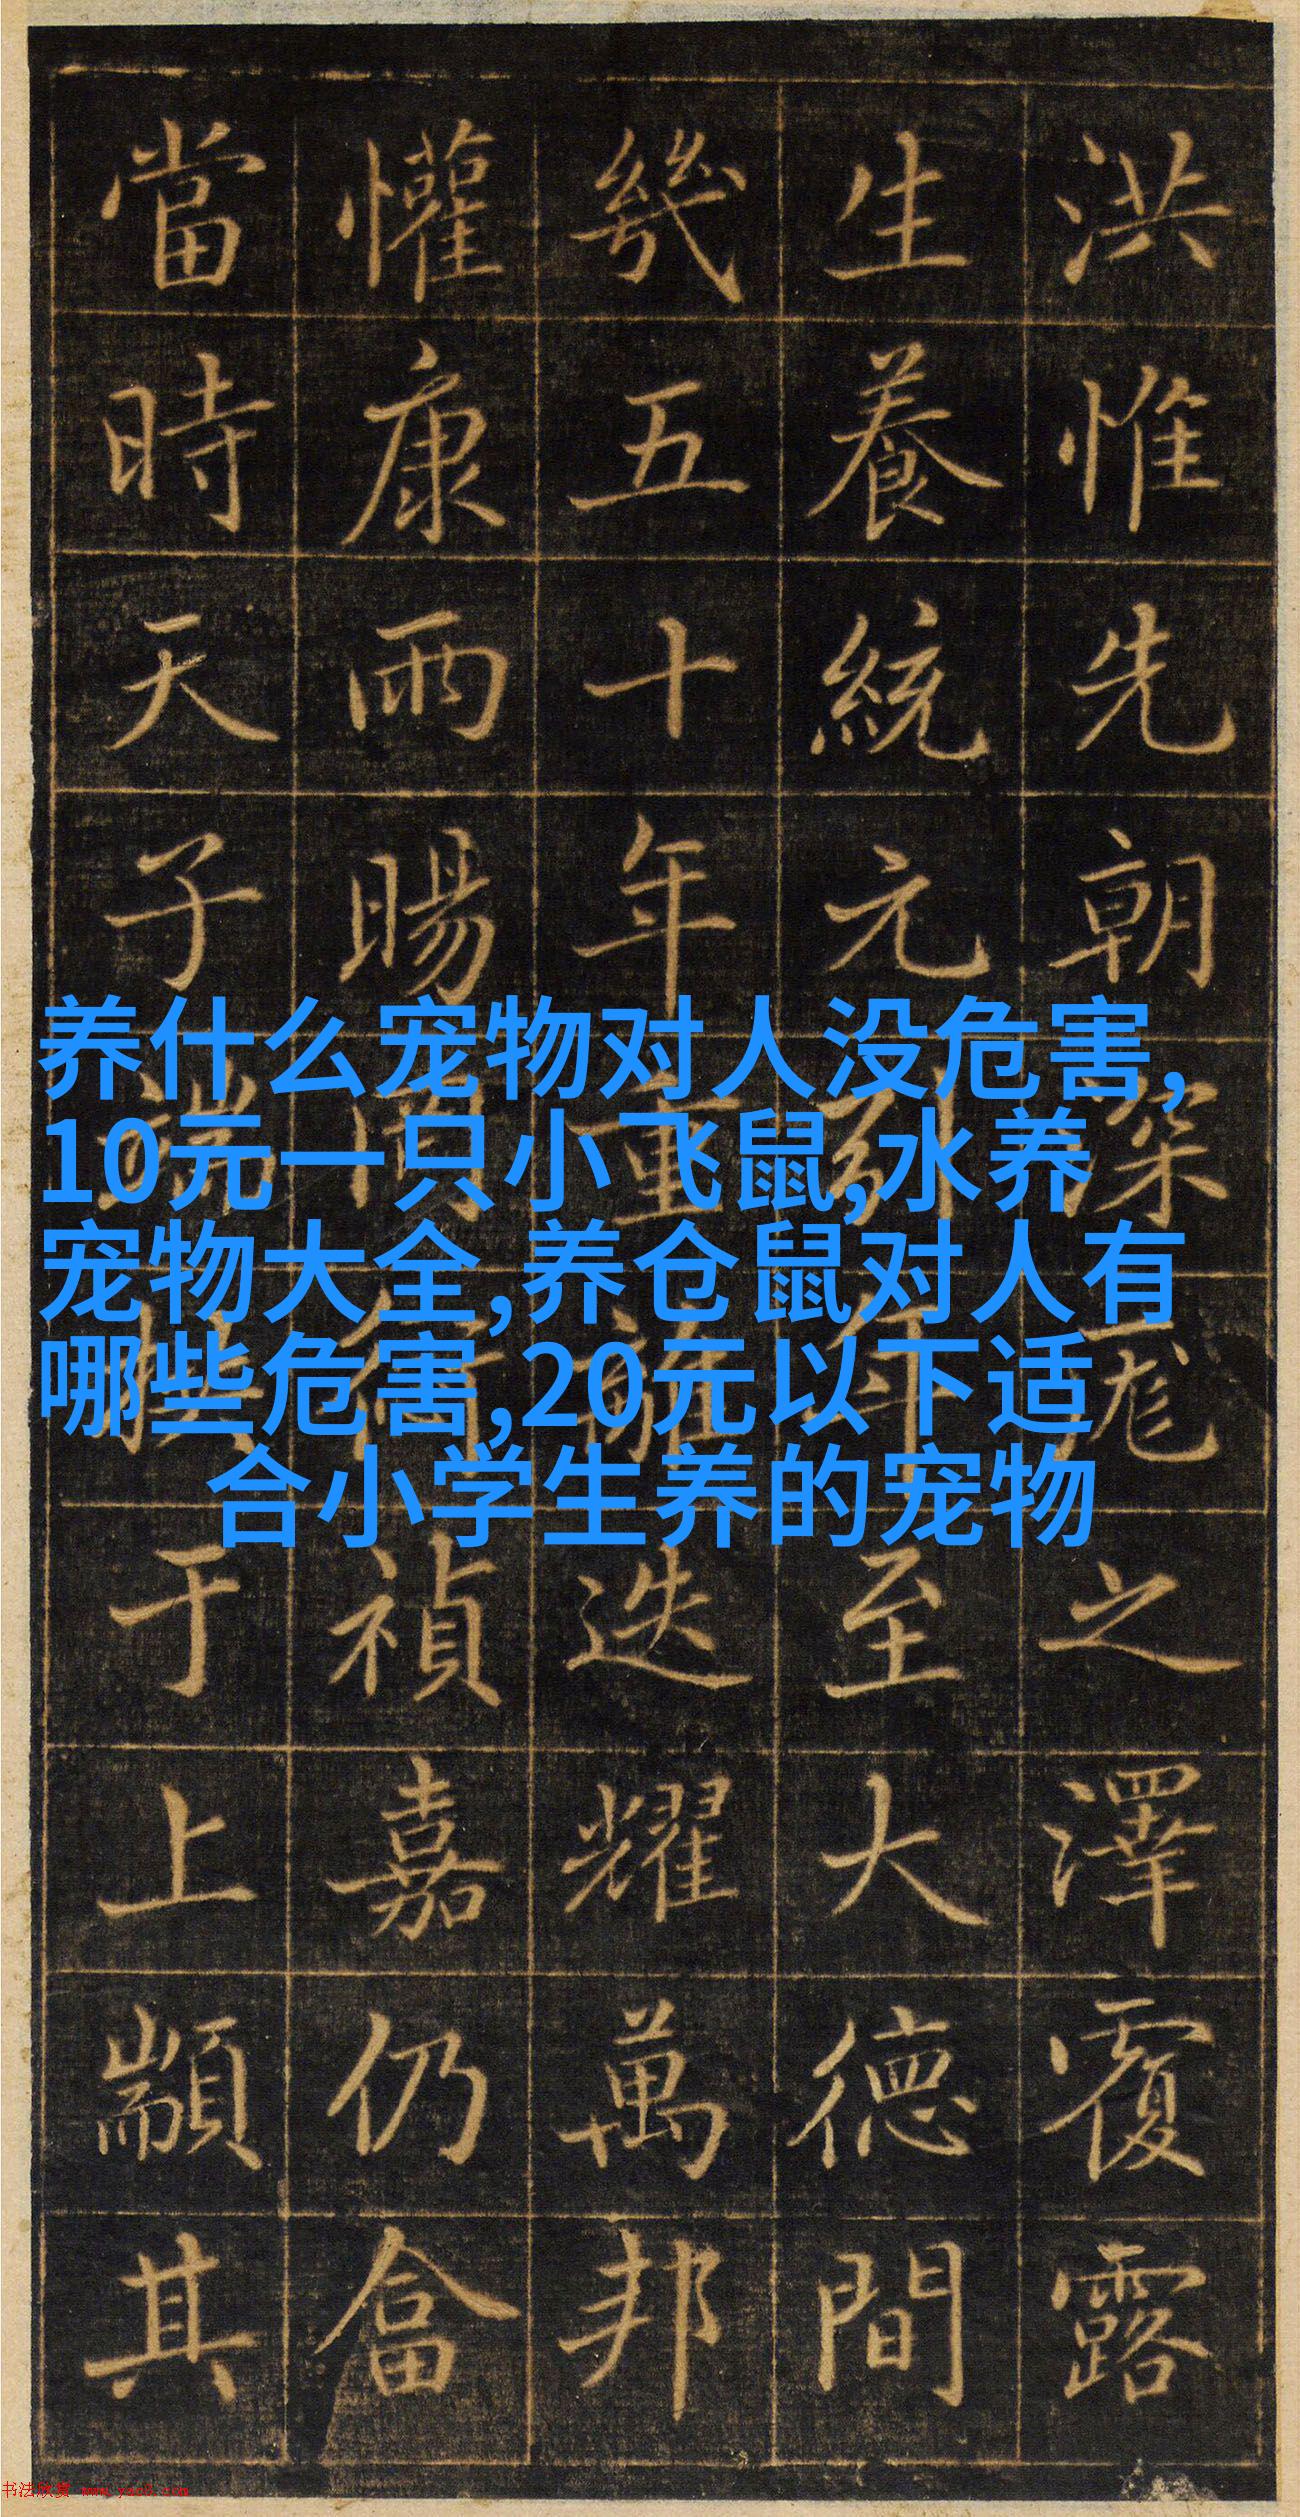 洪惟先朝深之澤覆露
生養統元至大德間
幾五十年重離迭耀萬邦
懽康雨暘禎嘉仍畣
當時天子端于上顒其
养什么宠物对人没危害,
10元一只小飞鼠,水养
宠物大全,养仓鼠对人有
哪些危害,20元以下适
合小学生养的宠物
书法欣赏 www.yac8.com